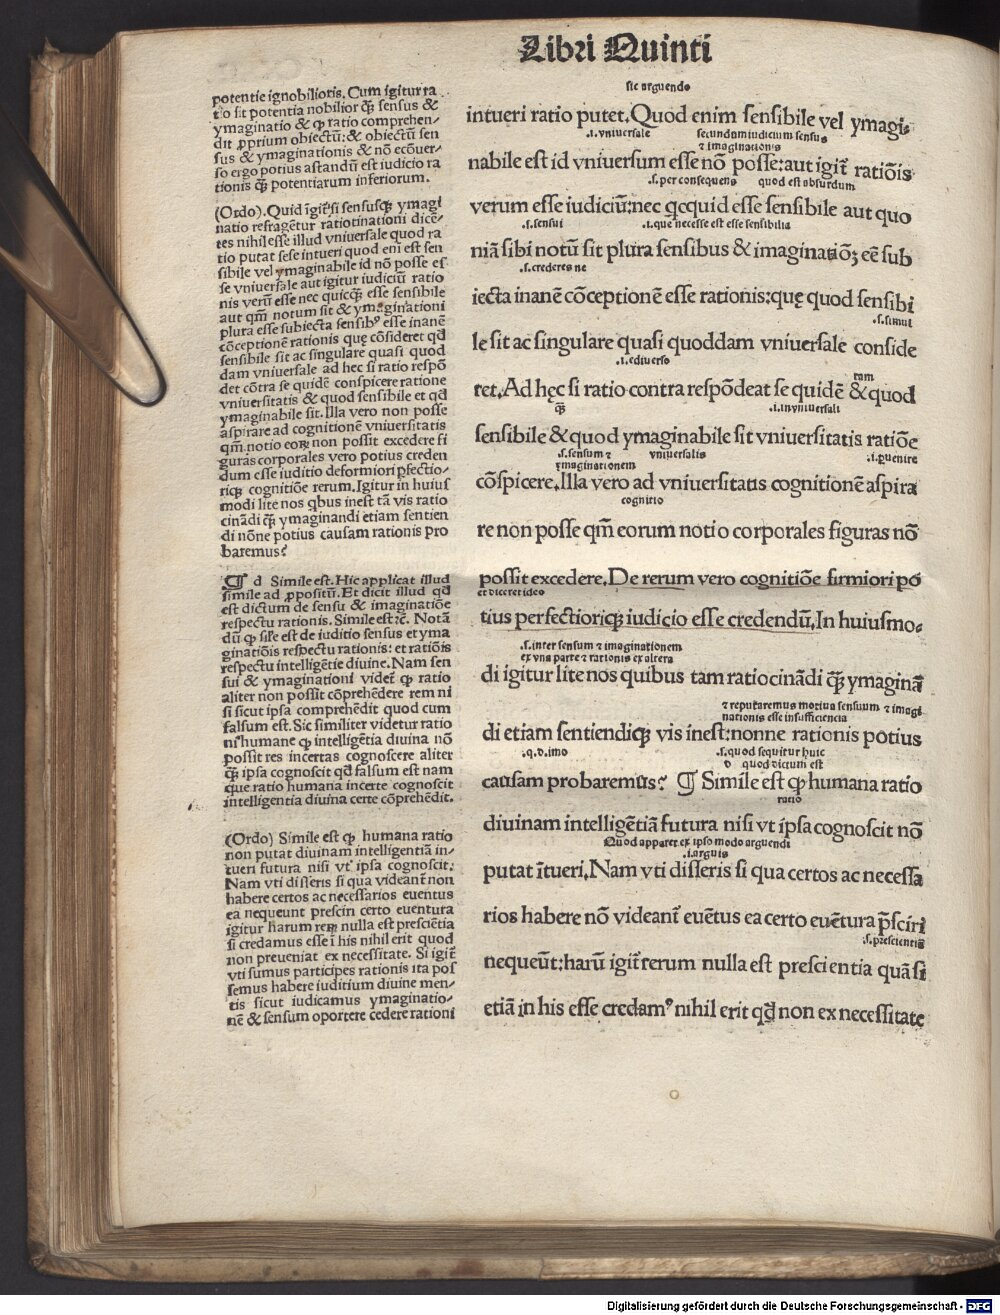 Libri Quinti
potentie ignobilioris. Cum igitur ra
tio sit potentia nobilior qᷓ sensus &
ymaginatio & ꝙ ratio comprehen-
dit ꝓprium obiectū: & obiectū sen
sus & ymaginationis & nō ecōuer-
so ergo potius astandū est iudicio ra
tionis qᷓ potentiarum inferiorum.
(Ordo). Quid īgit᷑ si sensusqꝫ ymagi
natio refragētur ratiotinationi dicē-
tes nihil esse illud vniuersale quod ra
tio putat sese intueri quod eni est sen
sibile vel ymaginabile id nō posse es
se vniuersale aut igitur iudiciū ratio
nis verū esse nec quicqᷓ esse sensibile
aut qm̄ notum sit & ymaginationi
plura esse subiecta sensibꝰ esse inanē
cōceptionē rationis que cōsideret qd̄
sensibile sit ac singulare quasi quod
dam vniuersale ad hec si ratio respō
det cōtra se quidē conspicere ratione
vniuersitatis & quod sensibile et qd̄
ymaginabile sit. Illa vero non posse
aspirare ad cognitionē vniuersitatis
qm̄ notio eoꝝ non possit excedere fi
guras corporales vero potius creden
dum esse iuditio deformiori ꝑfectio-
riqꝫ cognitiōe rerum. Igitur in huius
modi lite nos qbus inest tā vis ratio
cinādi qᷓ ymaginandi etiam sentien
di nōne potius causam rationis pro
baremus?
¶ d Simile est. Hic applicat illud
simile ad ꝓpositū. Et dicit illud qd̄
est dictum de sensu & imaginatiōe
respectu rationis. Simile est ꝛc̄. Notā
dū ꝙ sīle est de iuditio sensus et yma
ginatiōis respectu rationis: et ratiōis
respectu intelligētie diuine. Nam sen
sui & ymaginationi videt᷑ ꝙ ratio
aliter non possit cōprehēdere rem ni
si sicut ipsa comprehēdit quod cum
falsum est. Sic similiter videtur ratio
ni humane ꝙ intelligētia diuina nō
possit res incertas cognoscere aliter
qᷓ ipsa cognoscit qd̄ falsum est nam
que ratio humana incerte cognoscit
intelligentia diuina certe cōprehēdit.
(Ordo) Simile est ꝙ humana ratio
non putat diuinam intelligentiā in-
tueri futura nisi vt ipsa cognoscit:
Nam vti disseris si qua videant᷑ non
habere certos ac necessarios euentus
ea nequeunt prescin certo euentura
igitur harum reꝝ nulla est presciētia
si credamus esse ī his nihil erit quod
non preueniat ex necessitate. Si igit᷑
vti sumus participes rationis ita pos
semus habere iuditium diuine men-
tis sicut iudicamus ymaginatio-
nē & sensum oportere cedere rationi
sic arguendo
intueri ratio putet. Quod enim sensibile vel ymagi-
.i. vniuersale secundum iudicium sensus
⁊ imaginationis
nabile est id vniuersum esse nō posse: aut igit᷑ ratiōis
.s. per consequens quod est absurdum
verum esse iudiciū: nec qcquid esse sensibile aut quo
.s. sensui .i. que necesse est esse sensibilia
niā sibi notū sit plura sensibus & imaginatiōꝫ eē sub
.s. crederes ne
iecta inanē cōceptionē esse rationis: quę quod sensibi
.s. simul
le sit ac singulare quasi quoddam vniuersale conside
.i. ediuerso tam
ret. Ad hęc si ratio contra respōdeat se quidē & quod
qᷓ .i. in vniuersali
sensibile & quod ymaginabile sit vniuersitatis ratiōe
.s. sensum ⁊ vniuersalis .i. ꝑuenire
ymaginationem
cōspicere. Illa vero ad vniuersitatis cognitionē aspira
cognitio
re non posse qm̄ eorum notio corporales figuras nō
possit excedere. De rerum vero cognitiōe firmiori po
et diceret ideo
tius perfectioriqꝫ iudicio esse credendū. In huiusmo-
.s. inter sensum ⁊ imaginationem
ex vna parte ⁊ rationis ex altera
di igitur lite nos quibus tam ratiocinādi qᷓ ymaginā
⁊ reputaremus motiua sensuum ⁊ imagi
nationis esse insufficiencia
di etiam sentiendiqꝫ vis inest: nonne rationis potius
.q. d. imo .s. quod sequitur huic
d quod dictum est
causam probaremus? ¶ Simile est ꝙ humana ratio
ratio
diuinam intelligētiā futura nisi vt ipsa cognoscit nō
Quod apparet ex ipso modo arguendi
.i. arguis
putat ītueri. Nam vti disseris si qua certos ac necessa
rios habere nō videant᷑ euētus ea certo euētura p̄sciri
.s. prescientis
nequeūt: harū igit᷑ rerum nulla est prescientia quā si
etiā in his esse credamꝰ nihil erit qd̄ non ex necessitate
Digitalisierung gefördert durch die Deutsche Forschungsgemeinschaft - DFG